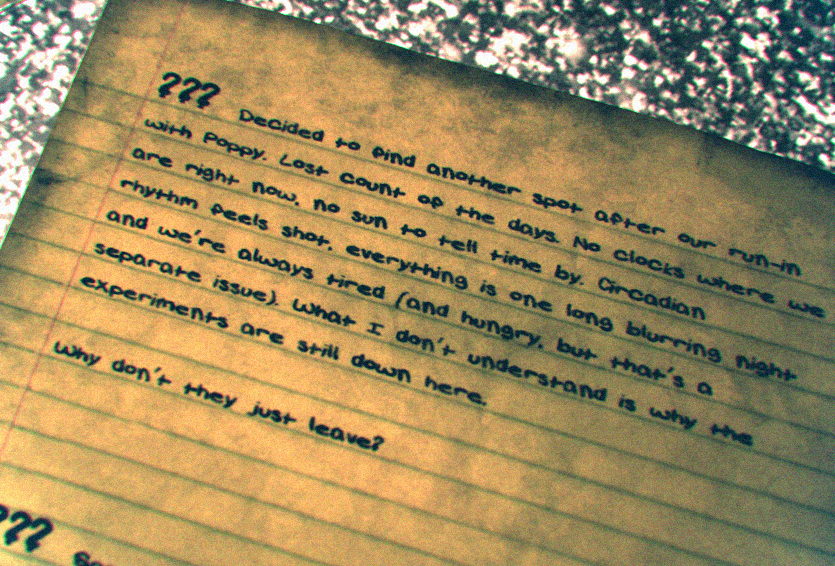 ??? Decided to find another spot after our run-in
with Poppy. Lost count of the days. No clocks where we
are right now, no sun to tell time by. Circadian
rhythm feels shot, everything is one long blurring night
and we're always tired (and hungry, but that's a
separate issue). What I don't understand is why the
experiments are still down here.
Why don't they just leave?
???